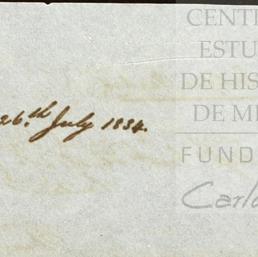 CENT
ESTU
DE HIS
DE M
26.th July 1834.
FUND
Carl